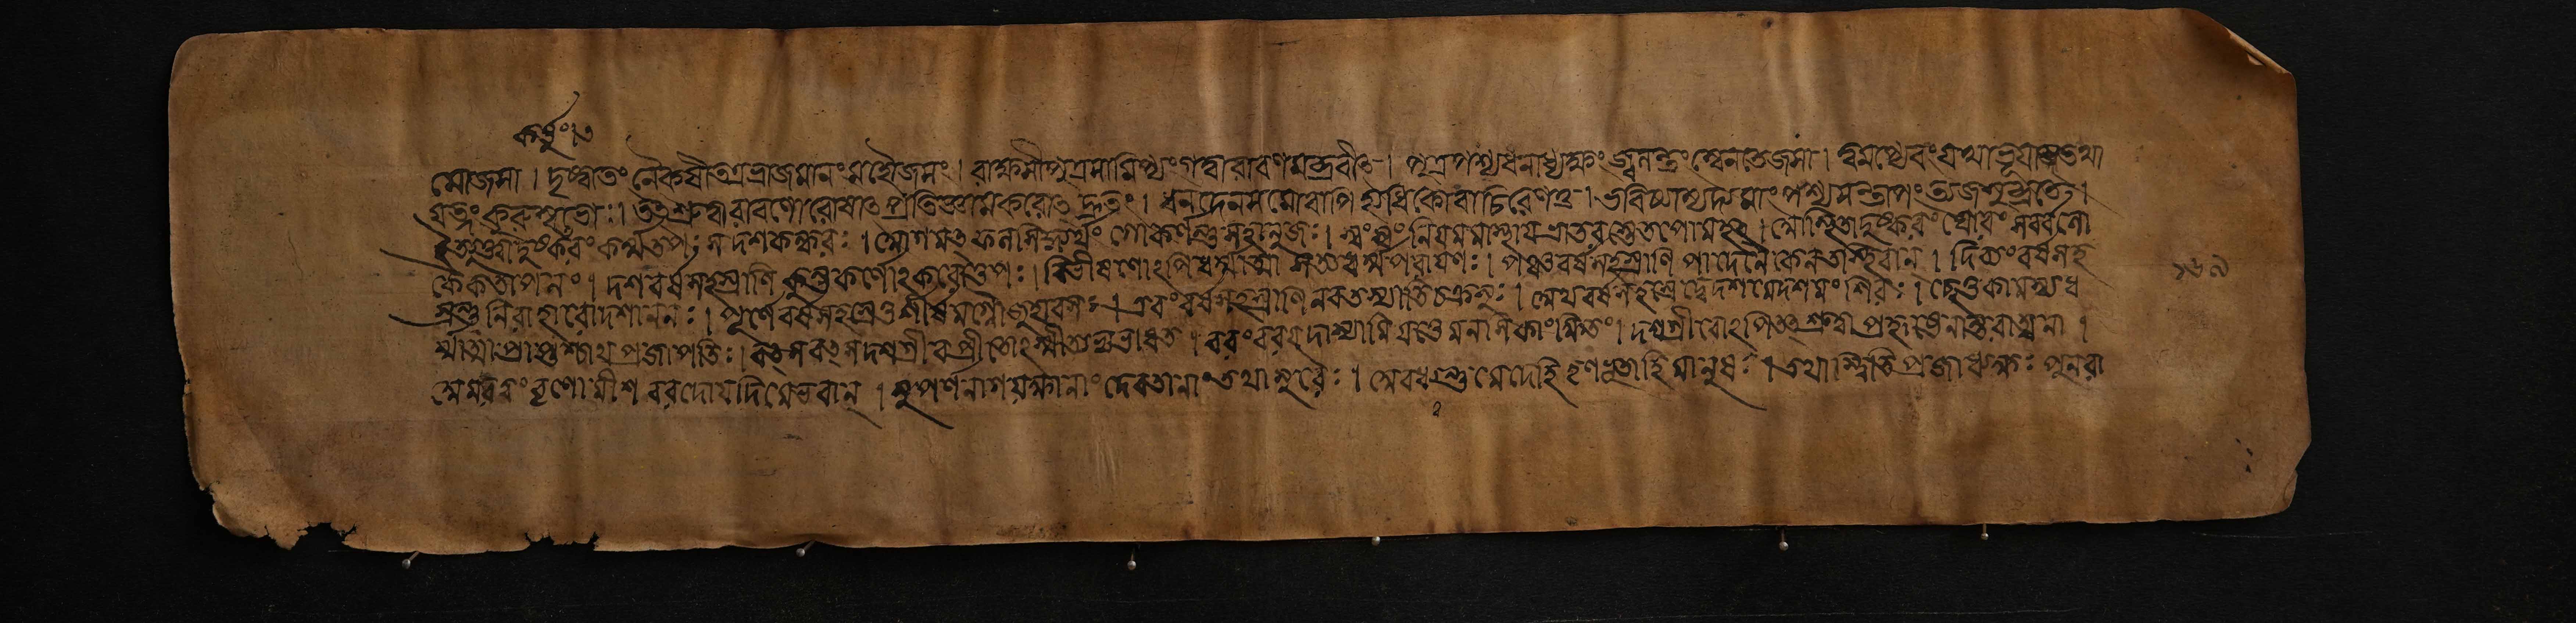 কর্ত্তুং৷৩
মোজসা । দৃষ্ট্বাতং নৈকষীতত্রভ্রাজমানংমহৌজসং । রাক্ষসীপুত্রমাসিথ্যংগত্বারাবণমব্রবীৎ । পুত্রপশ্যধনাধ্যক্ষং জ্বলন্তংস্বেনতেজসা । ত্বমপ্যেবংযথাভূযাস্ততথা
যত্নংকুরুষ্বভোঃ । তৎশ্রুত্বারাবণোরোষাৎপ্রতিজ্ঞামকরোত দ্রুতং । ধনদেনসমোবাপি হ্যধিকোবাচিরেণতু । ভবিষ্যাম্যম্বমাংপশ্যসন্তাপংত্যজসুব্রতে ।
ইত্যুক্ত্বাদুষ্করংকর্ম্মতপঃ সদশকন্ধরঃ । অগমৎফলসিদ্ধ্যর্থং গোকর্ণন্তুসহানুজঃ । স্বংস্বংনিযমমাস্থাযভ্রাতরস্তেতপোমহৎ । আস্থিতাদুষ্করংঘোরং সর্বলো
কৈকতাপনং । দশবর্ষসহস্রাণি কুম্ভকর্ণোঽকরোত্তপঃ । বিভীষণোঽপিধর্ম্মাত্মা সত্যধর্ম্মপরাযণঃ । পঞ্চবর্ষসহস্রাণি পাদেনৈকেনতস্থিবান্ । দিব্যংবর্ষসহ
স্রন্তুনিরাহারোদশাননঃ । পূর্ণেবর্ষসহস্রেতুশীর্ষমগ্নৌজুহাবসঃ । এবংবর্ষসহস্রাণিনবতস্যাতিচক্রমুঃ । অথবর্ষসহস্রেদ্বেদশমেদশমংশিরঃ । ছেত্তুকামস্যধ
র্ম্মাত্মাপ্রাপ্তশ্চাথপ্রজাপতিঃ । বৎসবৎসদশগ্রীবপ্রীতোঽস্মীত্যভ্যভাষত । বরংবরযদাস্যামিযত্তেমনসিকাংক্ষিতং । দশগ্রীবোঽপিতৎশ্রুত্বা প্রহৃষ্টেনান্তরাত্মনা ।
অমরত্বংবৃণোমীশ বরদোযদিমেভবান্ । সুপর্ণনাগযক্ষানাং দেবতানাংতথাসুরৈঃ । অবধ্যত্বন্তুমেদেহি তৃণভূতাহিমানুষাঃ । তথাস্ত্বিতিপ্রজাধ্যক্ষঃ পুনরা
১৬৯